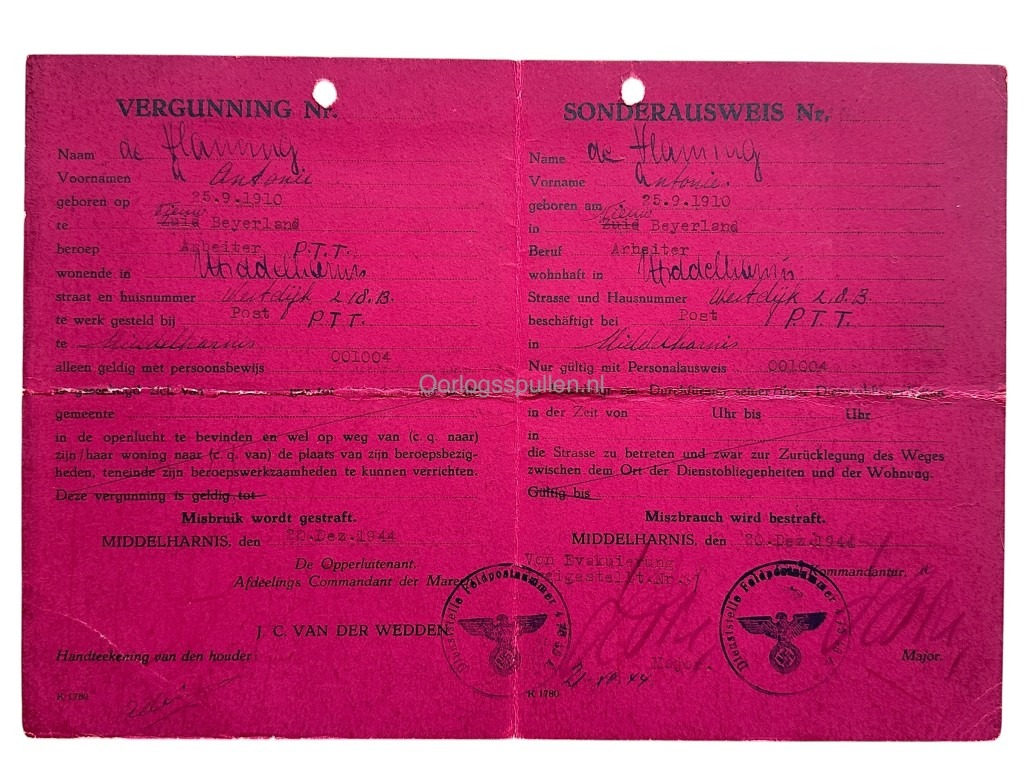 VERGUNNING Nr.
Naam de Vlaming
Voornamen Antonie
geboren op 25.9.1910
Nieuw
te Zuid Beyerland
beroep Arbeiter P.T.T.
wonende in Middelharnis
straat en huisnummer Westdijk
te werk gesteld bij Post P.T.T.
te Middelharnis
alleen geldig met persoonsbewijs 001004
gemeente
in de openlucht te bevinden en wel op weg van (c. q. naar)
zijn/haar woning naar (c. q. van) de plaats van zijn beroepsbezig-
heden, teneinde zijn beroepswerkzaamheden te kunnen verrichten.
Deze vergunning is geldig tot
Misbruik wordt gestraft.
MIDDELHARNIS, den 20.Dez.1944
De Opperluitenant.
Afdeelings Commandant der
J. C. VAN DER WEDDEN
Handteekening van den houder
K 1780
Dienststelle Feldpostnummer
SONDERAUSWEIS Nr.
Name de Vlaming
Vorname Antonie
geboren am 25.9.1910
Nieuw
in Zuid Beyerland
Beruf Arbeiter
wohnhaft in Middelharnis
Strasse und Hausnummer Westdijk
beschäftigt bei Post P.T.T.
in Middelharnis
Nur gültig mit Personalausweis 001004
in der Zeit von Uhr bis Uhr
in
die Strasse zu betreten und zwar zur Zurücklegung des Weges
zwischen dem Ort der Dienstobliegenheiten und der Wohnung.
Gültig bis
Miszbrauch wird bestraft.
MIDDELHARNIS, den 20.Dez.1944
Von Evakuierung
Kommandantur.
Major.
Major.
K 1780
Dienststelle Feldpostnummer
Oorlogsspullen.nl